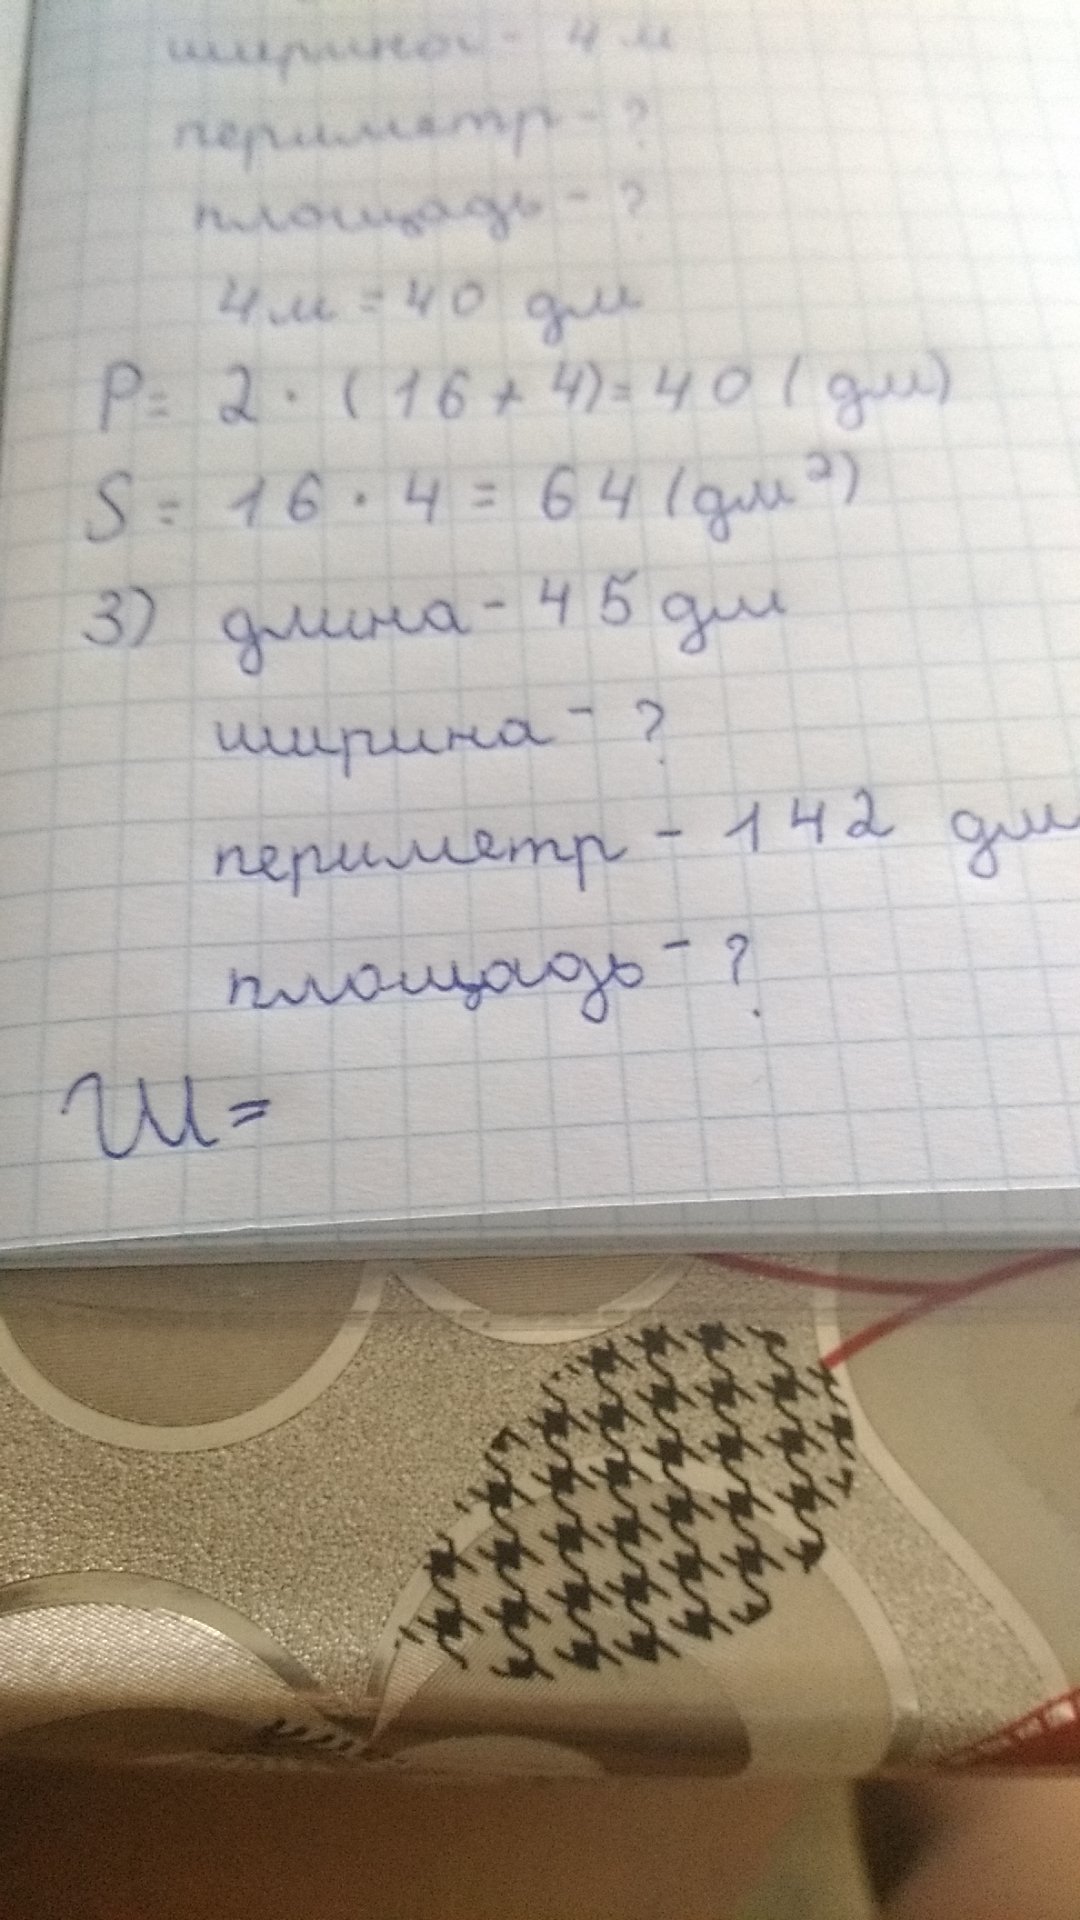 ширина - 4 м
периметр - ?
площадь - ?
4м = 40 дм
P = 2 · (16 + 4) = 40 (дм)
S = 16 · 4 = 64 (дм²)
3) длина - 45 дм
ширина - ?
периметр - 142 дм
площадь - ?
Ш =